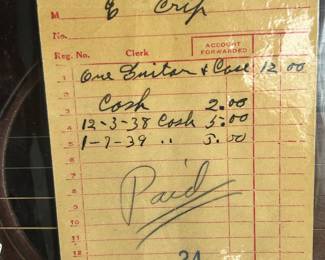 M E Crip
No.
Reg. No. Clerk ACCOUNT FORWARDED
1 One Guitar & Case 12 00
2
3 Cash 2.00
4 12-3-38 Cash 5.00
5 1-7-39 " 5.00
6
7
8 Paid
9
10
11
12 34